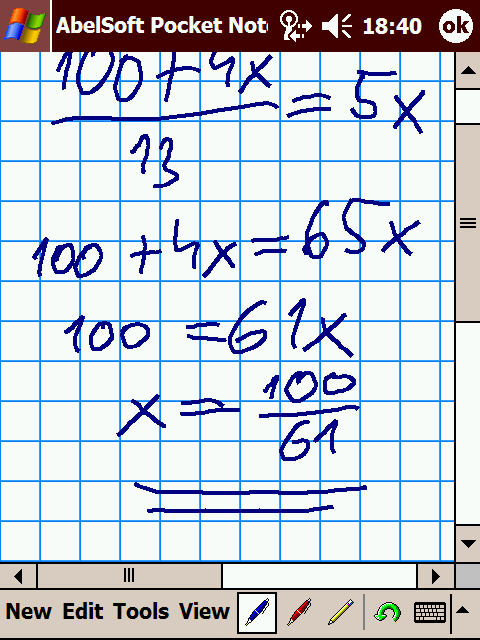 AbelSoft Pocket Not 18:40 ok
100+4x
13
=5x
100+4x=65x
100=61x
x=100
61
New Edit Tools View